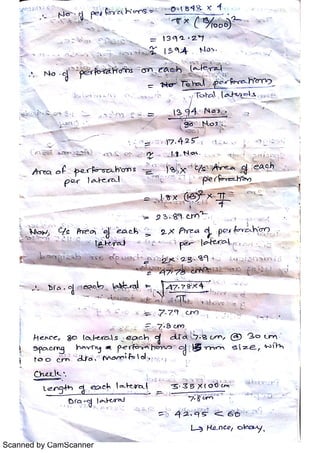 ∴ No. of perforations = 0.1848 x 4
π x (13/1000)²
= 1392.27
≈ 1394 Nos.
∴ No. of perforations on each lateral
= Total perforations
Total laterals
= 1394 Nos.
80 Nos.
= 17.425
≈ 18 Nos
Area of perforations per lateral = 18 x c/s Area of each perforation
= 18 x (1.3)² x π/4
= 23.89 cm²
Now, c/s Area of each lateral = 2 x Area of perforation per lateral
= 2 x 23.89
= 47.78 cm²
∴ Dia. of each lateral = √47.78x4
π
= 7.79 cm
= 7.8 cm
Hence, 80 laterals each of dia 7.8 cm, @ 30 cm
spacing having perforations of 13 mm size, with
100 cm dia. manifold.
Check:
Length of each lateral = 3.35 x 100 cm
Dia of lateral 7.8 cm
= 42.95 < 60
↳ Hence, okay.
Scanned by CamScanner